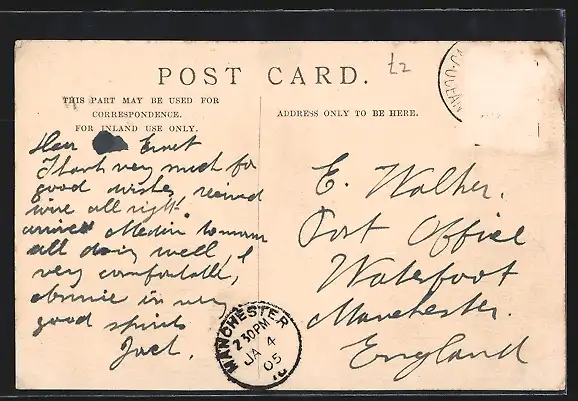 POST CARD.
£2
THIS PART MAY BE USED FOR
CORRESPONDENCE.
FOR INLAND USE ONLY.
ADDRESS ONLY TO BE HERE.
Dear Ernest
Thank very much for
good wishes, received
wire all right
arrive Medin tomorrow
all doing well, &
very comfortable,
in very
good spirits
Jack.
E. Walker.
Post Office
Waterfoot
Manchester.
England
MANCHESTER
2 30PM
JA 4
05